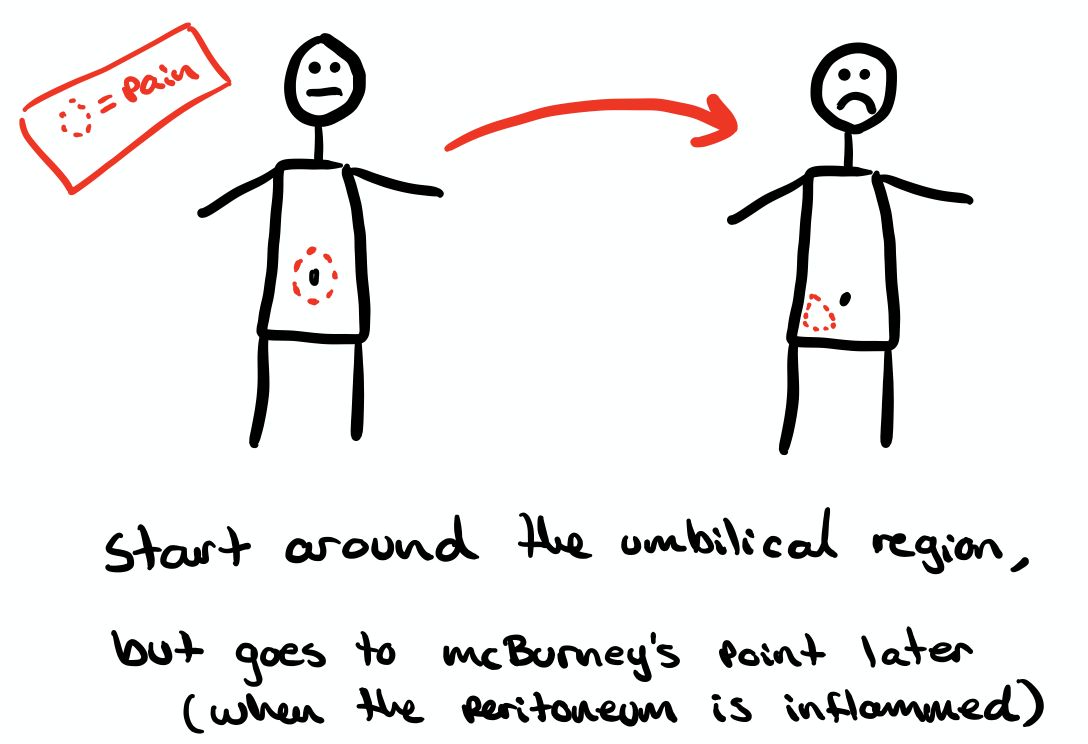 = pain
start around the umbilical region,
but goes to mcBurney's point later
(when the peritoneum is inflammed)